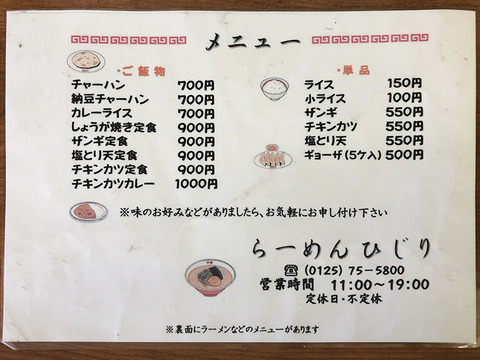 メニュー
・ご飯物
チャーハン 700円
納豆チャーハン 700円
カレーライス 700円
しょうが焼き定食 900円
ザンギ定食 900円
塩とり天定食 900円
チキンカツ定食 900円
チキンカツカレー 1000円
・単品
ライス 150円
小ライス 100円
ザンギ 550円
チキンカツ 550円
塩とり天 550円
ギョーザ(5ケ入) 500円
※味のお好みなどがありましたら、お気軽にお申し付け下さい
らーめんひじり
☎(0125) 75-5800
営業時間 11:00~19:00
定休日・不定休
※裏面にラーメンなどのメニューがあります